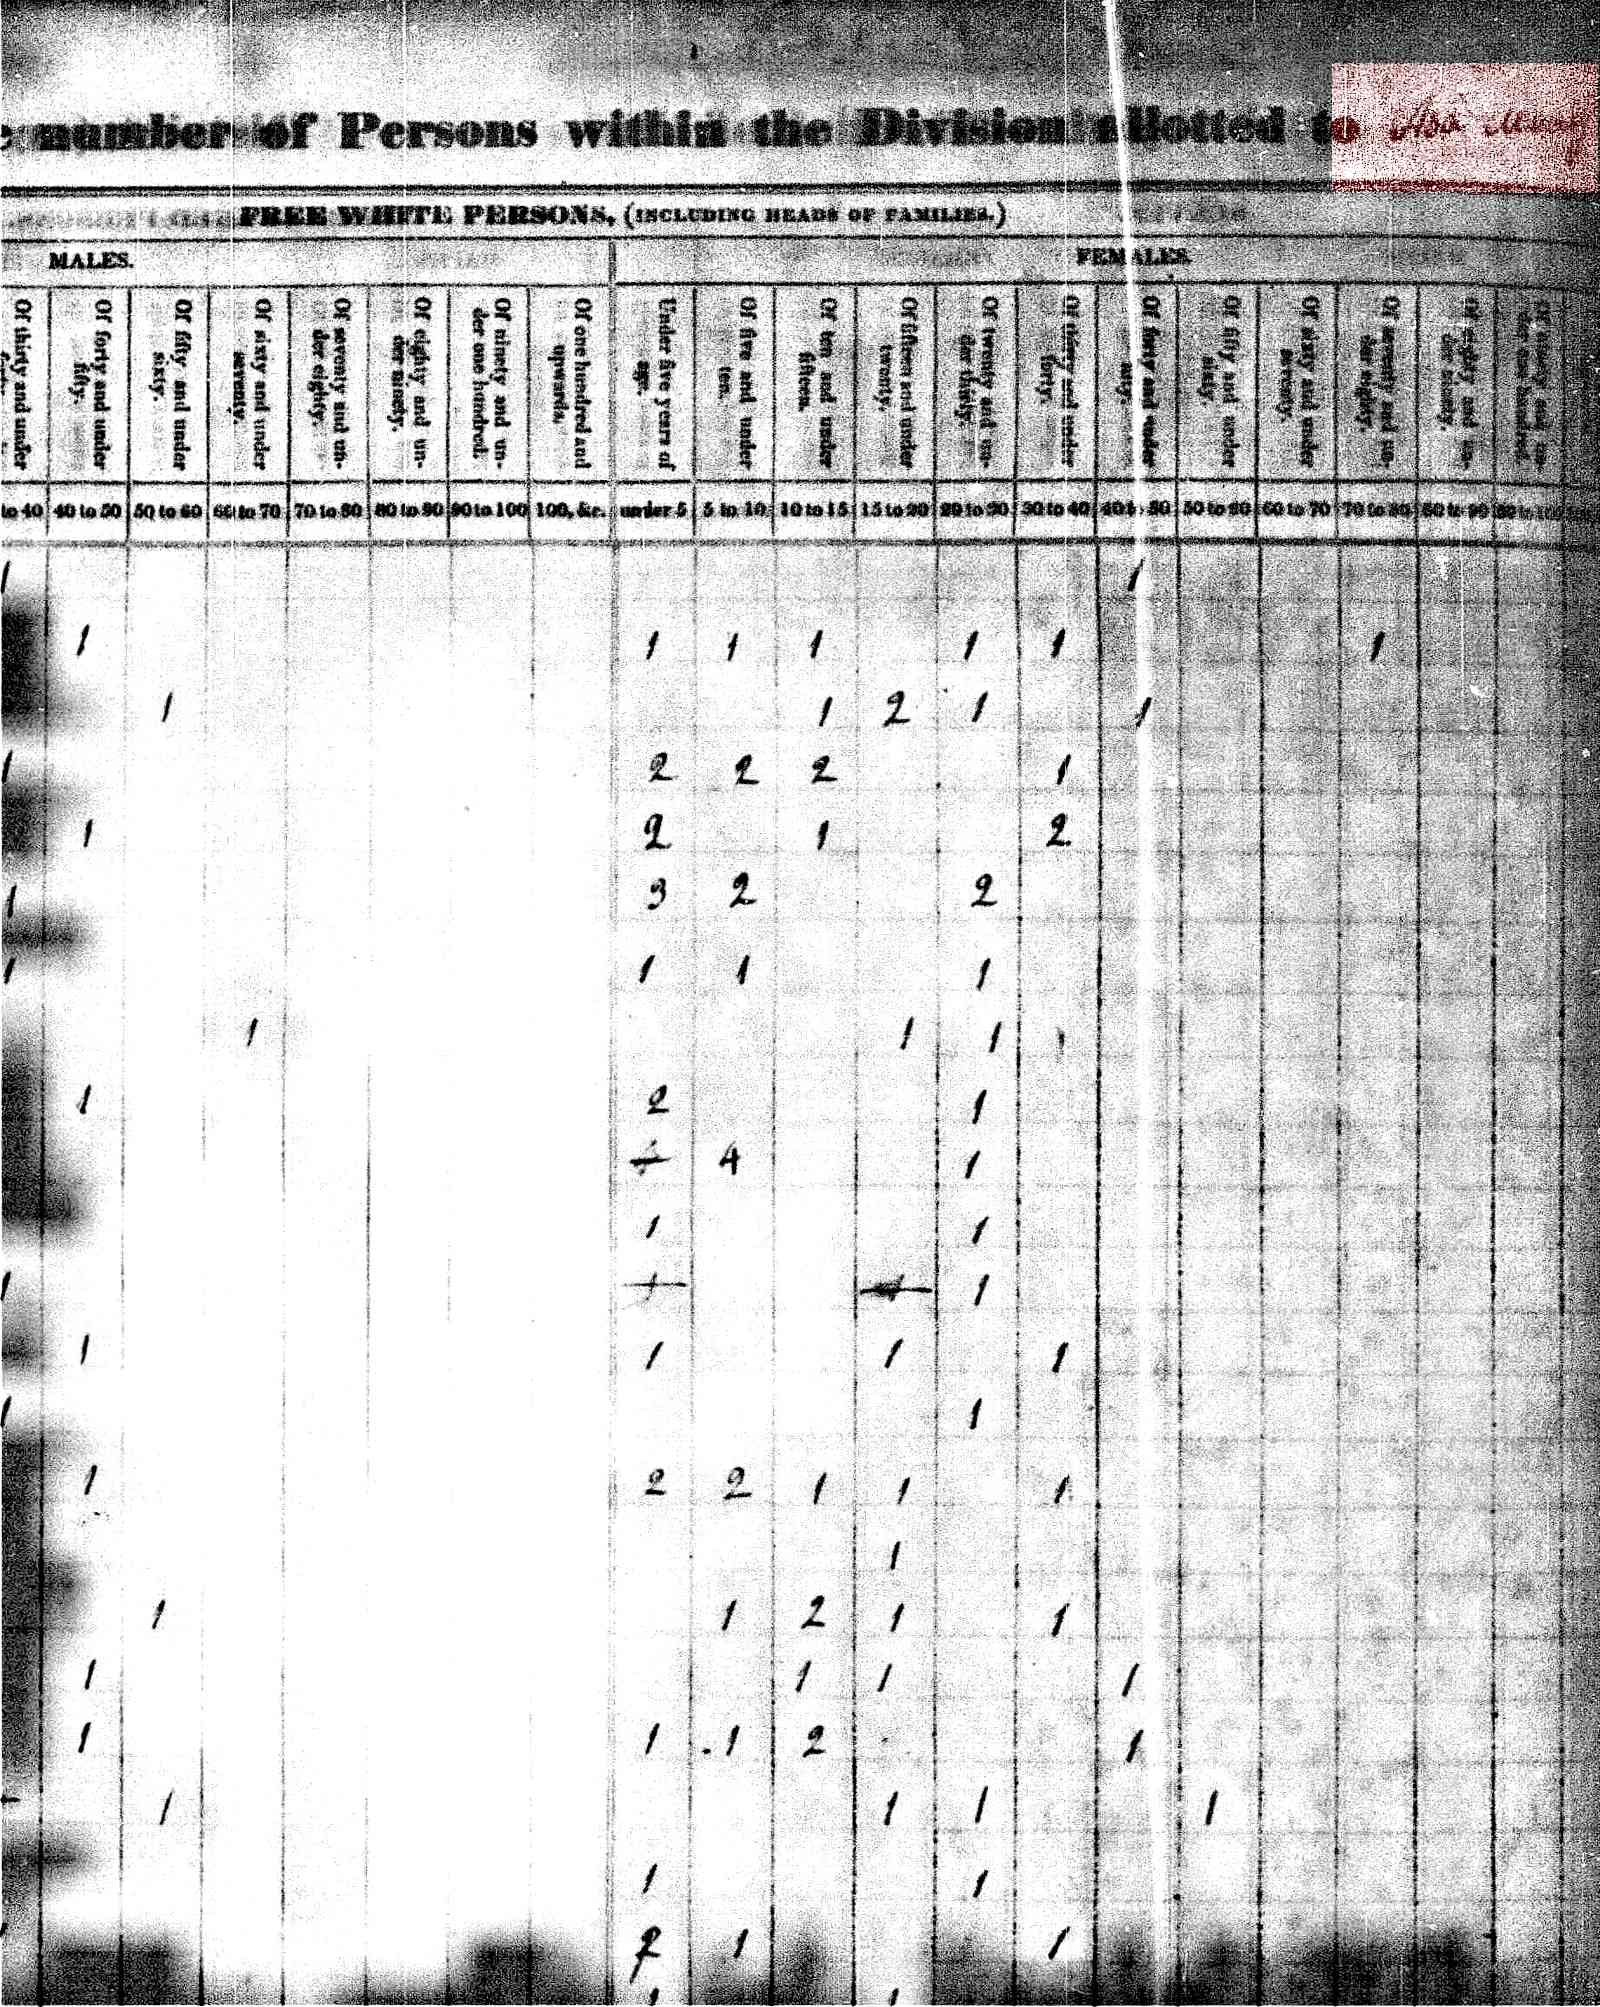 number of Persons within the Division allotted to
FREE WHITE PERSONS, (INCLUDING HEADS OF FAMILIES.)
MALES. FEMALES.
Of thirty and under Of forty and under fifty. Of fifty and under sixty. Of sixty and under seventy. Of seventy and under eighty. Of eighty and under ninety. Of ninety and under one hundred. Of one hundred and upwards. Under five years of age. Of five and under ten. Of ten and under fifteen. Of fifteen and under twenty. Of twenty and under thirty. Of thirty and under forty. Of forty and under fifty. Of fifty and under sixty. Of sixty and under seventy. Of seventy and under eighty. Of eighty and under ninety. Of ninety and under one hundred.
to 40 40 to 50 50 to 60 60 to 70 70 to 80 80 to 90 90 to 100 100, &c. under 5 5 to 10 10 to 15 15 to 20 20 to 30 30 to 40 40 to 50 50 to 60 60 to 70 70 to 80 80 to 90 90 to 100
1 1
1 1 1 1 1 1 1
1 1 2 1 1
1 2 2 2 1
1 2 1 2
1 3 2 2
1 1 1 1
1 1 1 1
1 2 1
4 1
1 1
1 1
1 1 1 1
1 1
1 2 2 1 1 1
1
1 1 2 1 1
1 1 1 1
1 1 1 2 1
1 1 1 1
1 1
1 1
1 1